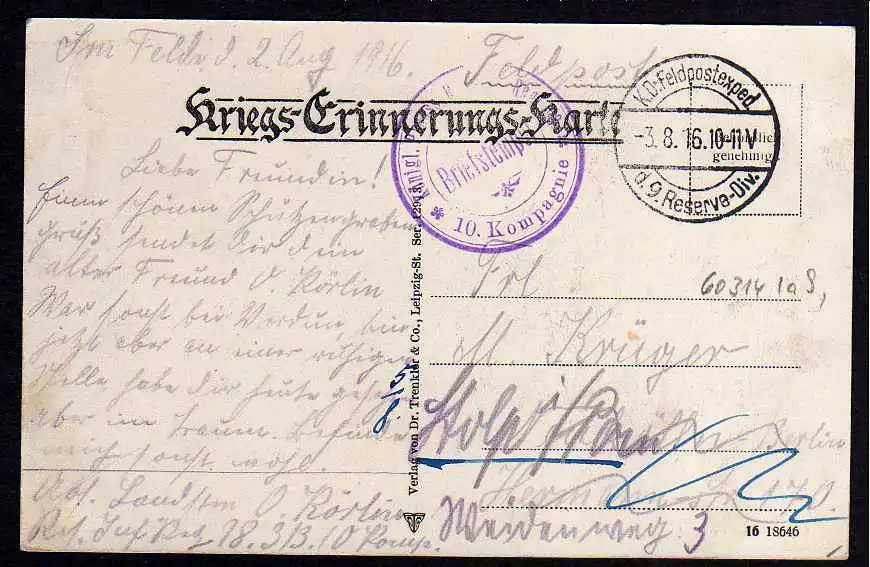 Im Felde d. 2. Aug 1916.
Feldpost
Kriegs-Erinnerungs-Karte
K.D. Feldpostexped.
-3.8.16.10-11V
d. 9. Reserve-Div.
genehmigt
Königl.
Briefstempel
* 10. Kompagnie *
Liebe Freundin!
Einen schönen Schützengraben
gruß sendet dir dein
alter Freund O. Körlin
War sonst bei Verdun bin
jetzt aber an einer ruhigen
Stelle habe dir heute
aber im Traum. Befinde
mich sonst wohl.
Abs. Landstm O. Körlin
Res. Inf Reg 38. 3B. 10 Komp.
Verlag von Dr. Trenkler & Co., Leipzig-St. Ser.
Frl
M. Krüger
60314
Stolp i/Pom
Berlin
170.
Weidenweg 3
16 18646